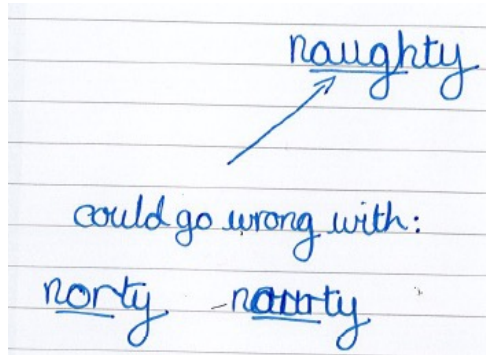 naughty
could go wrong with:
norty naurty